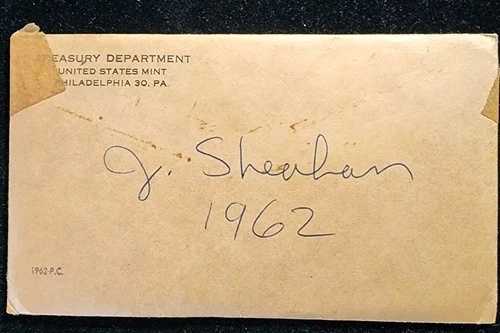 TREASURY DEPARTMENT
UNITED STATES MINT
PHILADELPHIA 30, PA.
J. Sheahan
1962
1962-P.C.